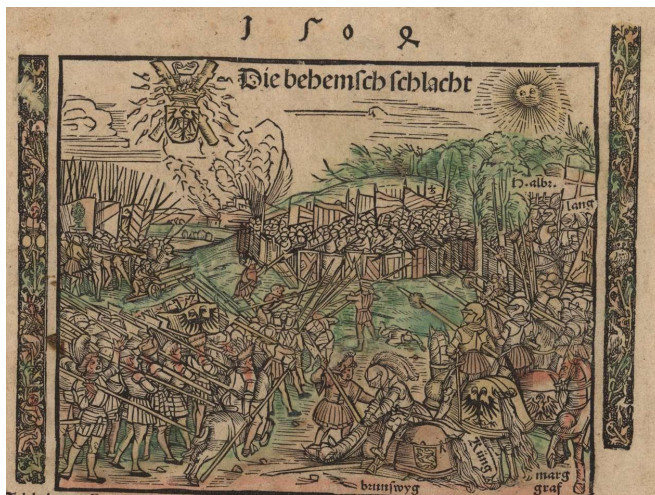 1504
Die behemsch schlacht
H. albr.
lang
Küng
brunswyg
marg
graf